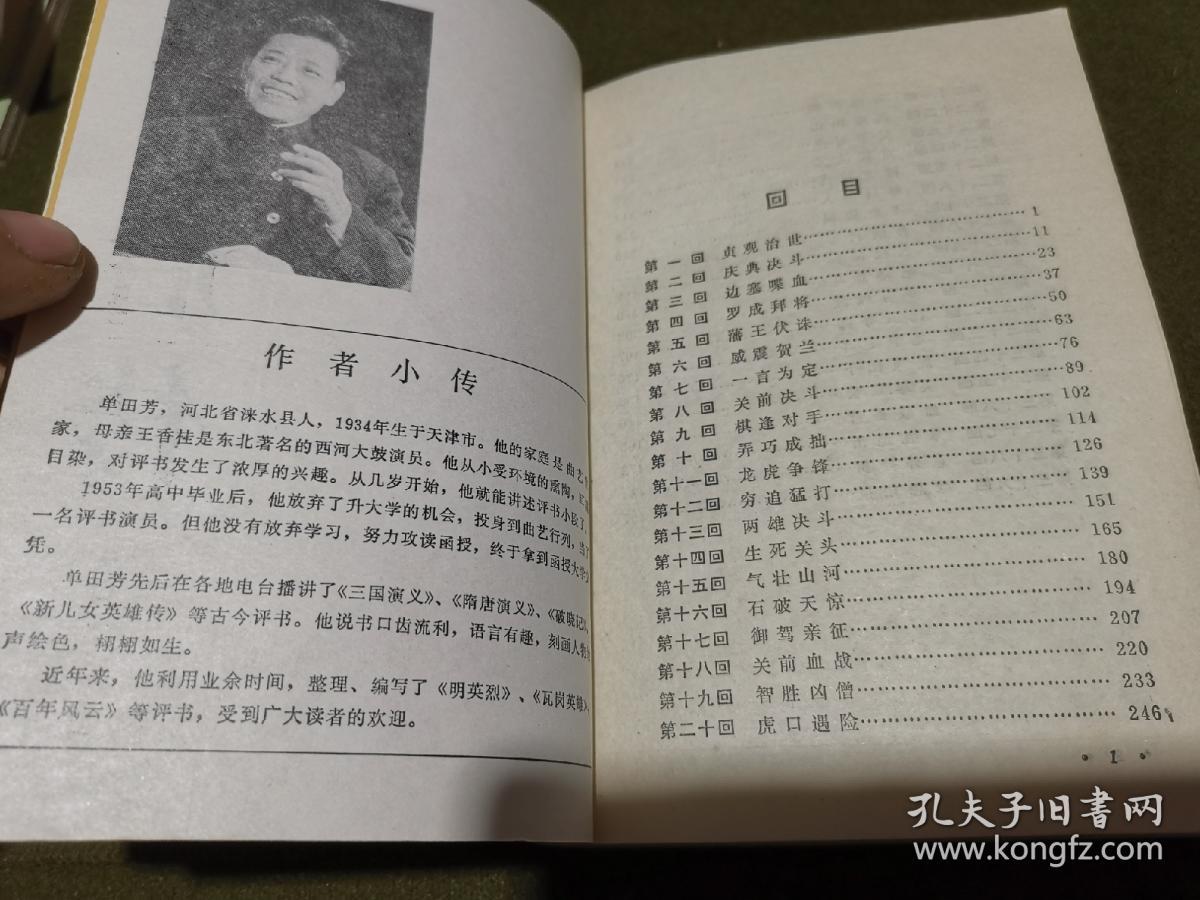 作者小传
单田芳，河北省涞水县人，1934年生于天津市。他的家庭是曲艺
家，母亲王香桂是东北著名的西河大鼓演员。他从小受环境的熏陶，
目染，对评书发生了浓厚的兴趣。从几岁开始，他就能讲述评书小段了
1953年高中毕业后，他放弃了升大学的机会，投身到曲艺行列，当了
一名评书演员。但他没有放弃学习，努力攻读函授，终于拿到函授大学
凭。
单田芳先后在各地电台播讲了《三国演义》、《隋唐演义》、《破晓记》
《新儿女英雄传》等古今评书。他说书口齿流利，语言有趣，刻画人物
声绘色，栩栩如生。
近年来，他利用业余时间，整理、编写了《明英烈》、《瓦岗英雄》
《百年风云》等评书，受到广大读者的欢迎。
回目
第一回 贞观治世……1
第二回 庆典决斗……11
第三回 边塞喋血……23
第四回 罗成拜将……37
第五回 藩王伏诛……50
第六回 威震贺兰……63
第七回 一言为定……76
第八回 关前决斗……89
第九回 棋逢对手……102
第十回 弄巧成拙……114
第十一回 龙虎争锋……126
第十二回 穷追猛打……139
第十三回 两雄决斗……151
第十四回 生死关头……165
第十五回 气壮山河……180
第十六回 石破天惊……194
第十七回 御驾亲征……207
第十八回 关前血战……220
第十九回 智胜凶僧……233
第二十回 虎口遇险……246
· 1 ·
孔夫子旧书网
www.kongfz.com